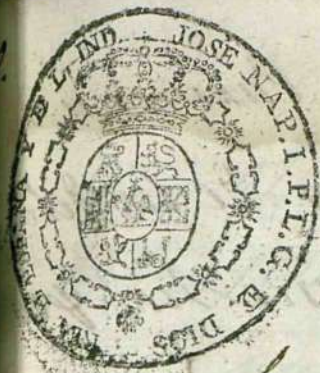 JOSE NAP. I. P. L. G. D. DIOS REY D ESPAÑA Y D L. IND.